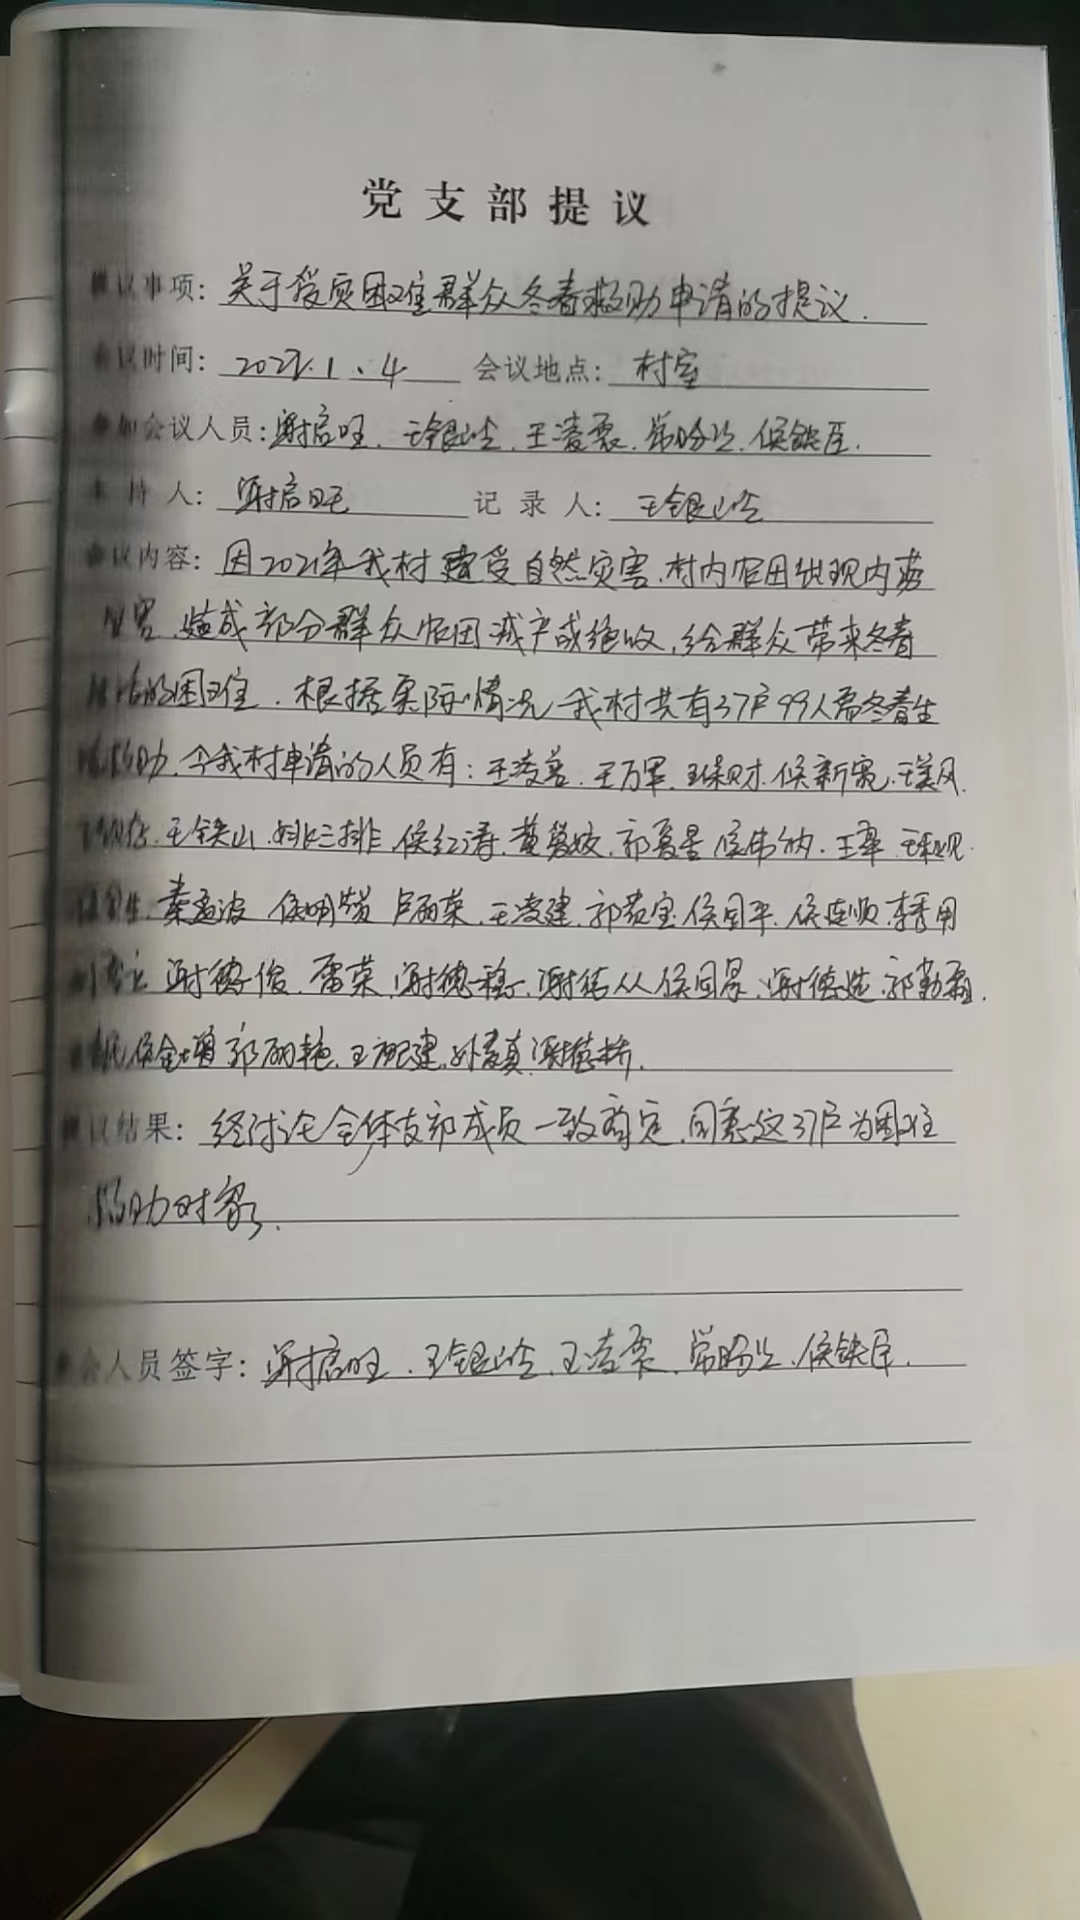 党支部提议
议事项：关于受灾困难群众冬春救助申请的提议.
议时间：2022.1.4 会议地点：村室
参加会议人员：谢启旺.王银岭.王凌霞.常盼兴.侯铁臣.
主持人：谢启旺 记录人：王银岭
会议内容：因2021年我村遭受自然灾害.村内农田出现内涝
灾害 造成部分群众农田减产或绝收，给群众带来冬春
生活的困难.根据实际情况 我村共有37户99人需冬春生
活救助.今我村申请的人员有：王凌善.王万军.王保财.侯新宽.王美风.
王铁山.姚三排.侯红涛.黄翠姣.郭夏景 侯伟纳.王翠
秦孟波 侯明 卢丽荣.王凌建.郭黄宝.侯国平.侯连顺.李秀用
谢德俊.雷荣.谢德稳.谢传从 侯国景.谢德选.郭勤霞.
侯金增 郭丽艳.王建.孙素真.谢慧桥.
议结果：经讨论全体支部成员一致商定.同意这37户为困难
救助对象.
会人员签字：谢启旺.王银岭.王凌霞.常盼兴.侯铁臣.